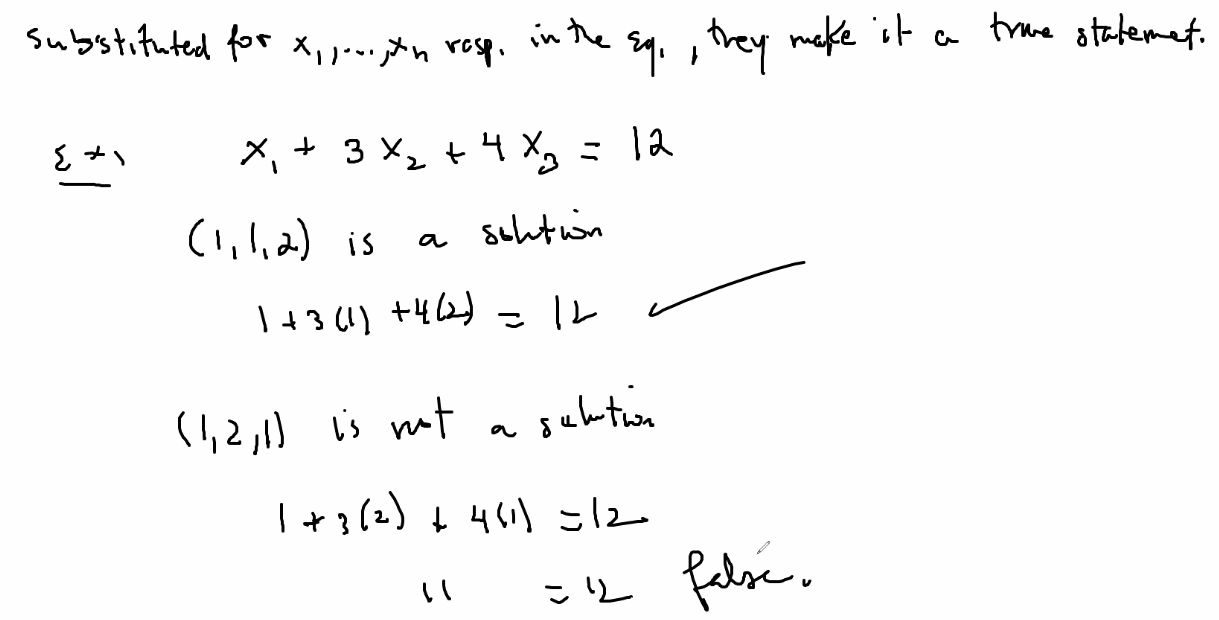 substituted for x₁,...,xₙ resp. in the Eq., they make it a true statemet.
Ex. x₁ + 3x₂ + 4x₃ = 12
(1,1,2) is a solution
1+3(1)+4(2) = 12 ✓
(1,2,1) is not a solution
1+3(2)+4(1) = 12
11 = 12 false.